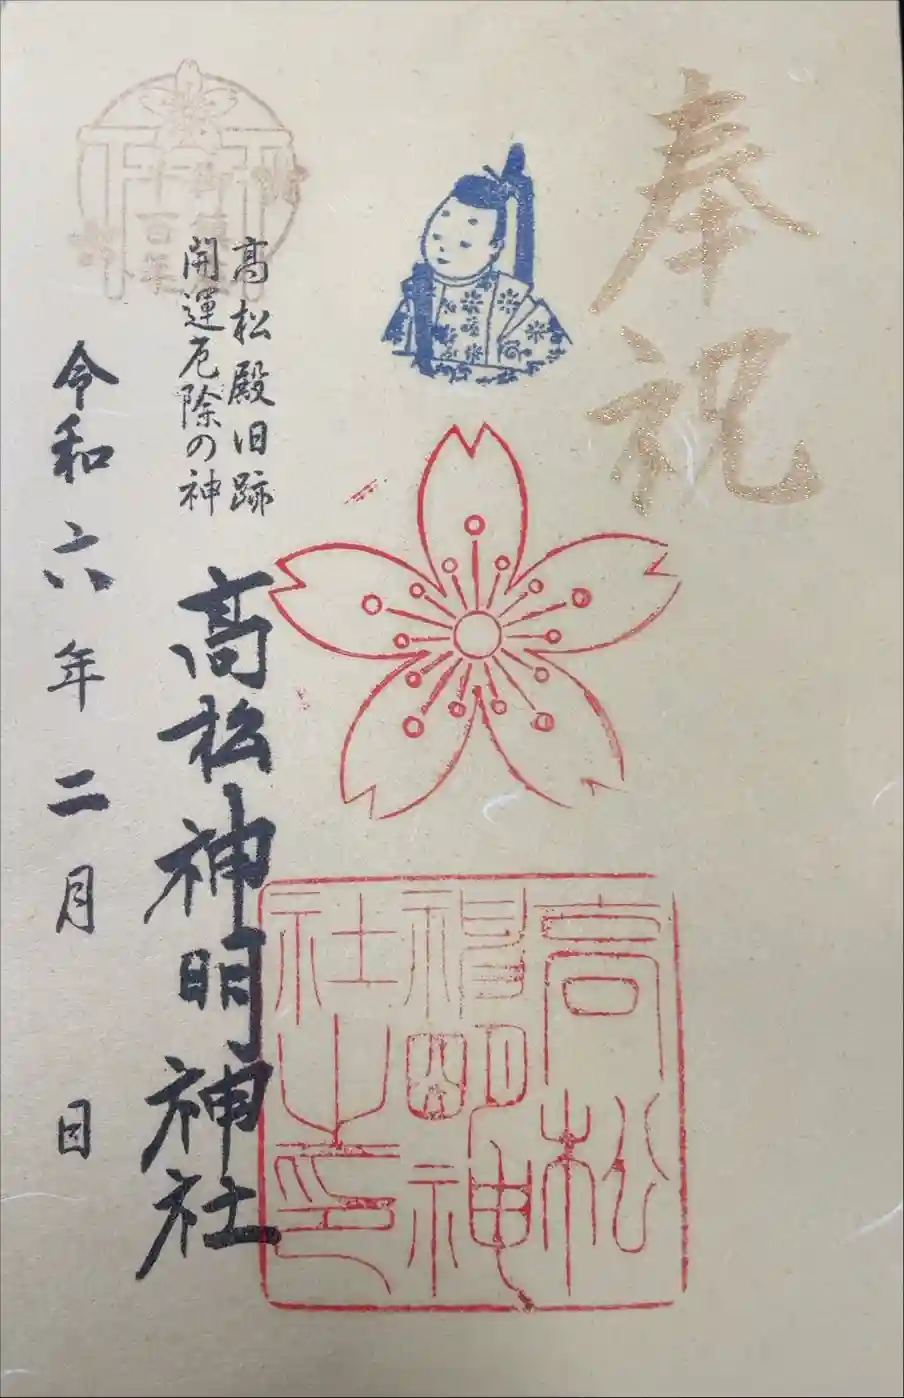 奉祝
高松
神明神
社之印
高松殿旧跡
開運厄除の神
高松神明神社
令和六年二月 日